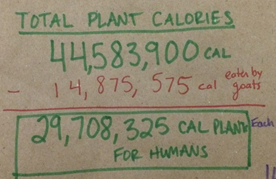 TOTAL PLANT CALORIES
44,583,900 CAL
- 14,875,575 cal eaten by goats
29,708,325 CAL PLANT Each
FOR HUMANS